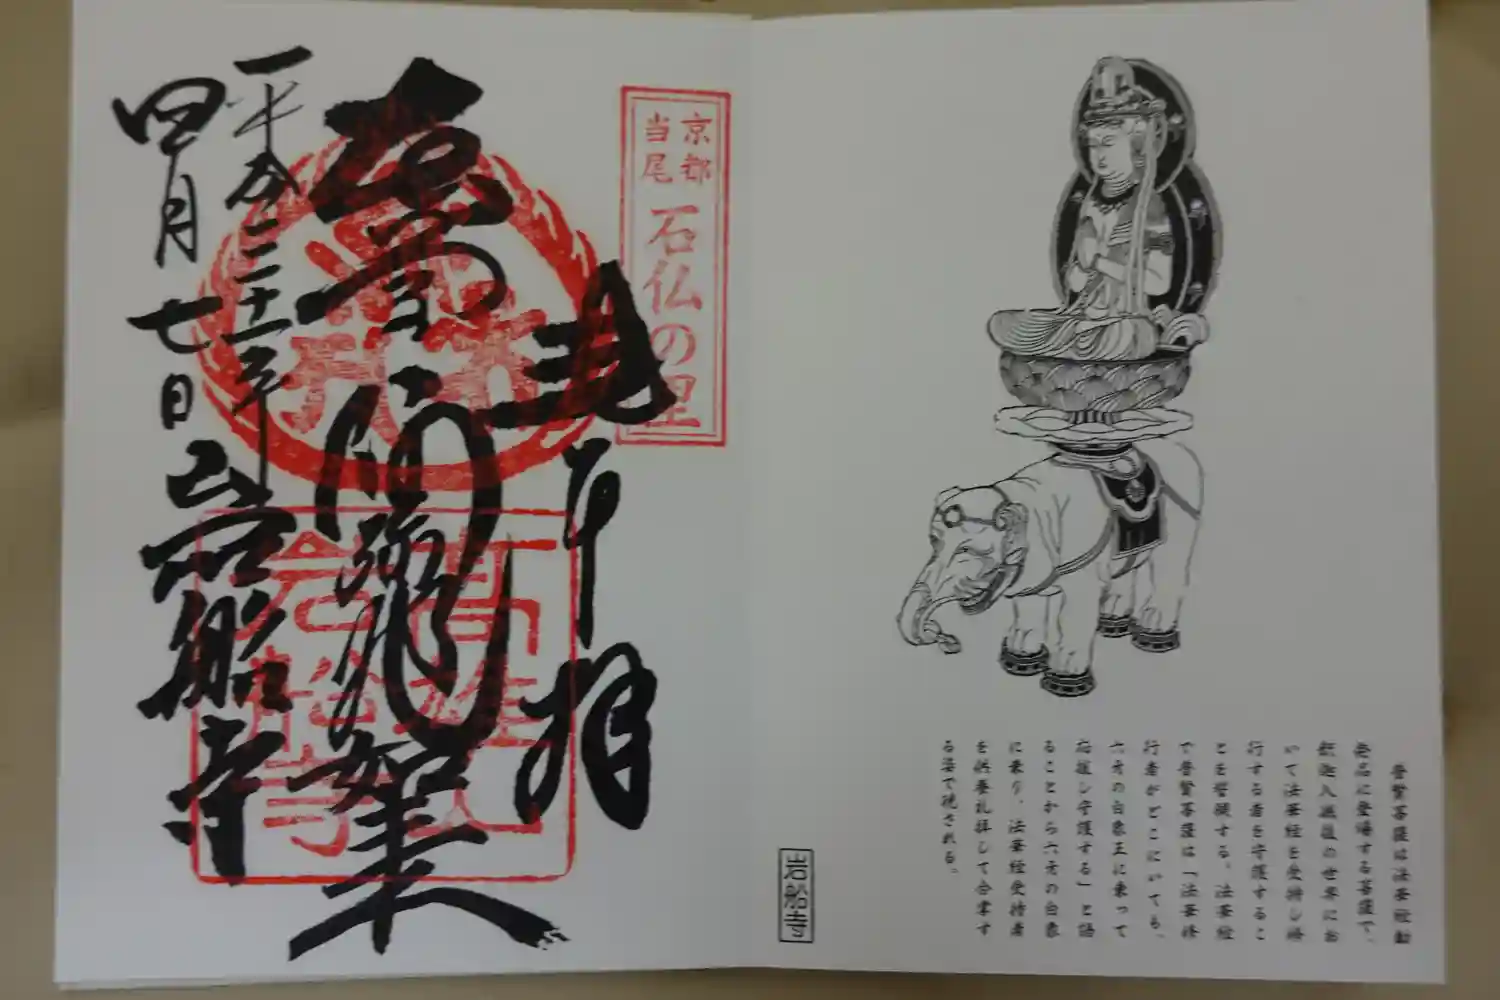 京都
当尾
石仏の里
拝
阿弥陀如来
四月七日
岩船寺
高雄山
岩船寺
普賢菩薩は法華経勧
発品に登場する菩薩で、
釈迦入滅後の世界にお
いて法華経を受持し修
行する者を守護するこ
とを誓願する。法華経
で普賢菩薩は「法華修
行者がどこにいても、
六牙の白象王に乗って
応援し守護する」と語
ることから六牙の白象
に乗り、法華経受持者
を供養礼拝して合掌す
る姿で現される。
岩船寺